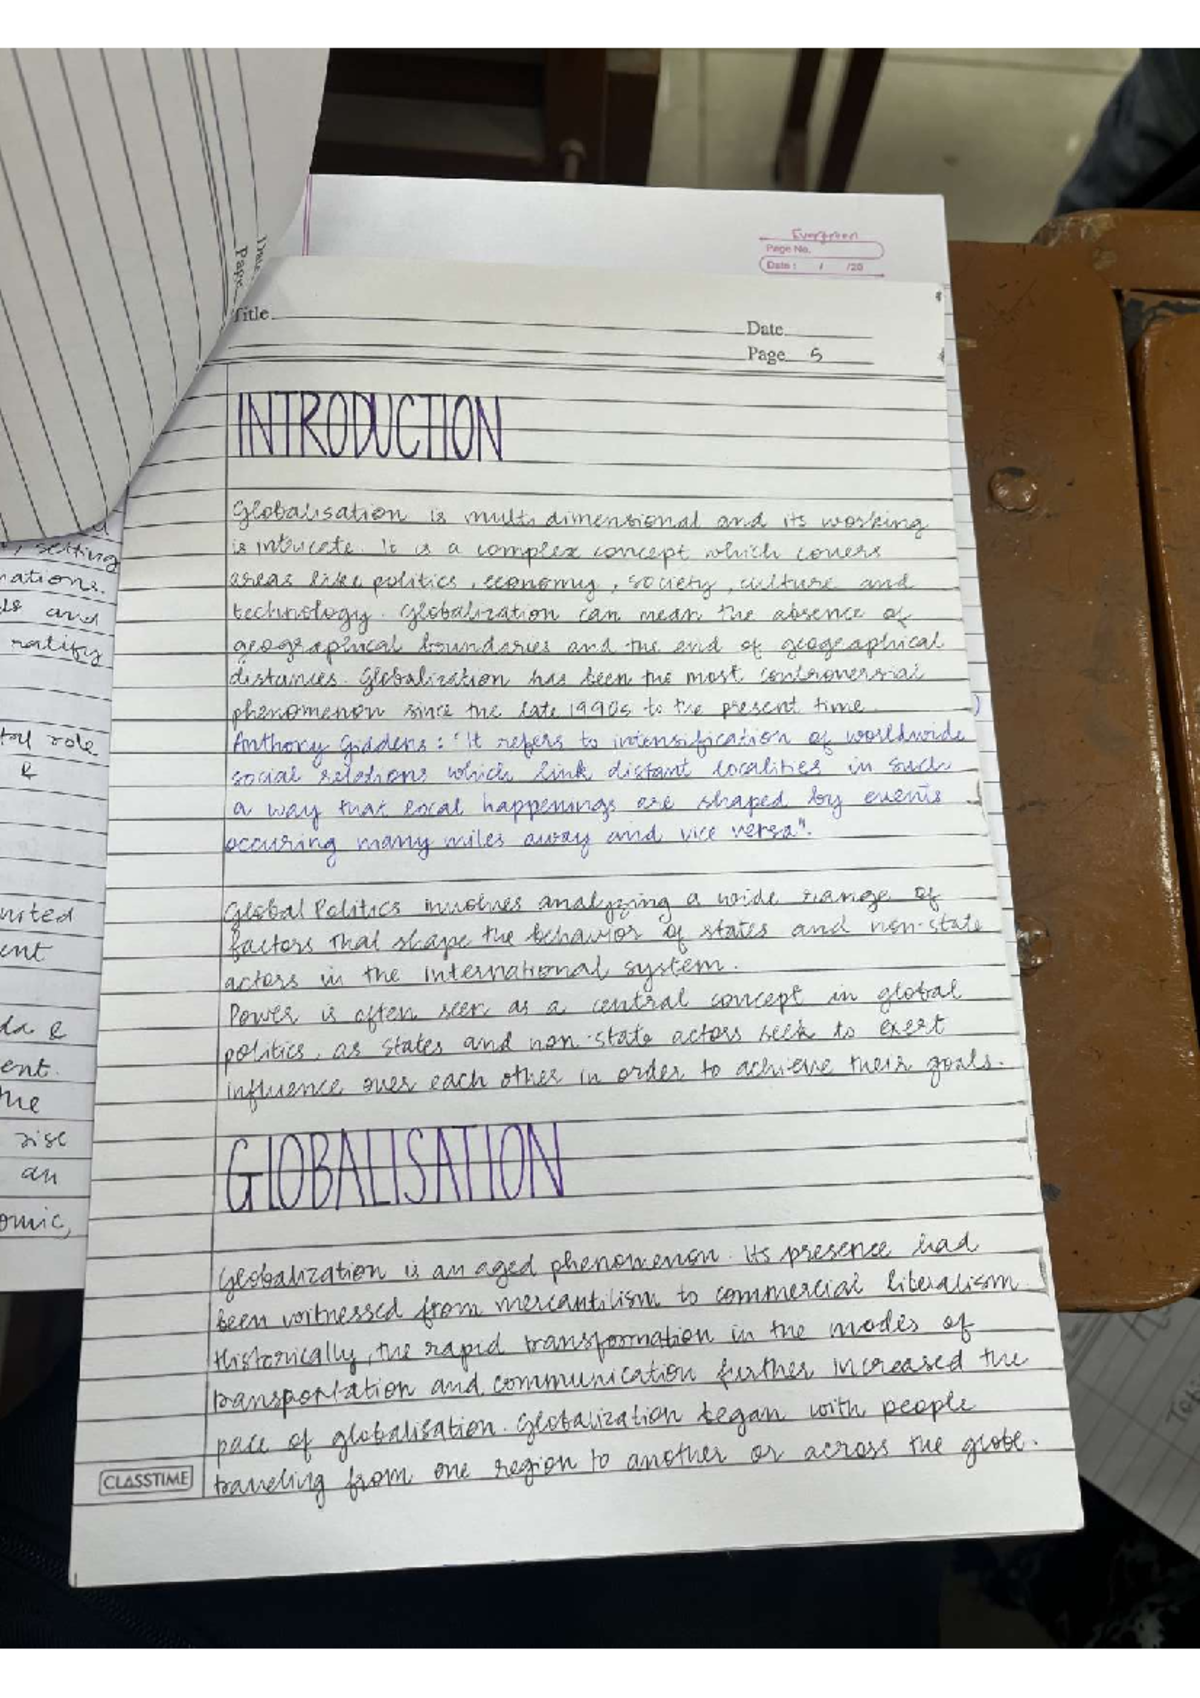 Evergreen
Page No.
Date : / /20
Date
Page
Title
Date
Page 5
INTRODUCTION
Globalisation is multi dimensional and its working
is intricate. It is a complex concept which covers
areas like politics, economy, society, culture and
technology. Globalization can mean the absence of
geographical boundaries and the end of geographical
distances. Globalization has been the most controversial
phenomenon since the late 1990s to the present time.
Anthony Giddens: "It refers to intensification of worldwide
social relations which link distant localities in such
a way that local happenings are shaped by events
occuring many miles away and vice versa".
Global Politics involves analyzing a wide range of
factors that shape the behavior of states and non-state
actors in the international system.
Power is often seen as a central concept in global
politics, as states and non-state actors seek to exert
influence over each other in order to achieve their goals.
GLOBALISATION
Globalization is an aged phenomenon. Its presence had
been witnessed from mercantilism to commercial literalism.
Historically, the rapid transformation in the modes of
transportation and communication further increased the
pace of globalisation. Globalization began with people
traveling from one region to another or across the globe.
CLASSTIME
setting
ations.
and
ratify
role
&
ent
&
ent.
rise
an
omic,